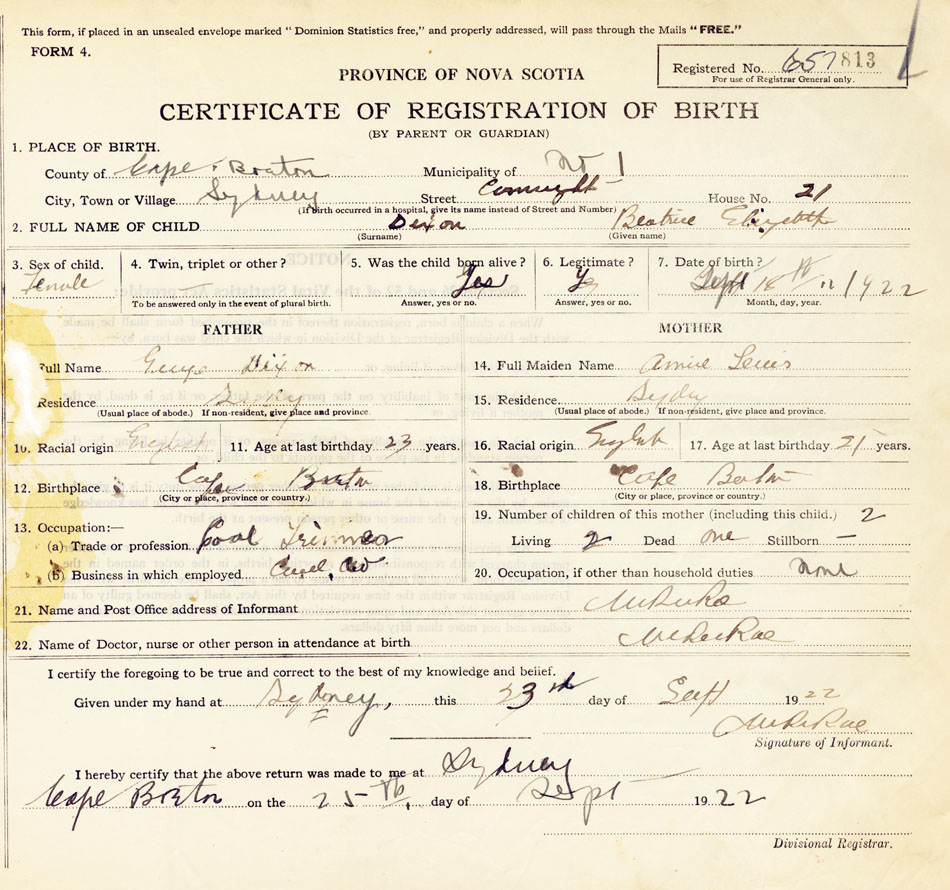 This form, if placed in an unsealed envelope marked “Dominion Statistics free,” and properly addressed, will pass through the Mails “FREE.”
FORM 4.
Registered No. 657813
For use of Registrar General only.
PROVINCE OF NOVA SCOTIA
CERTIFICATE OF REGISTRATION OF BIRTH
(BY PARENT OR GUARDIAN)
1. PLACE OF BIRTH.
County of Cape Breton Municipality of No 1
City, Town or Village Sydney Street House No. 21
(If birth occurred in a hospital, give its name instead of Street and Number)
2. FULL NAME OF CHILD Dixon Beatrice Elizabeth
(Surname) (Given name)
3. Sex of child. 4. Twin, triplet or other? 5. Was the child born alive? 6. Legitimate? 7. Date of birth?
Female Yes Yes Sept 1922
To be answered only in the event of plural birth. Answer, yes or no. Answer, yes or no. Month, day, year.
FATHER MOTHER
Full Name Dixon 14. Full Maiden Name Annie Lewis
Residence Sydney 15. Residence. Sydney
(Usual place of abode.) If non-resident, give place and province. (Usual place of abode.) If non-resident, give place and province.
10. Racial origin English 11. Age at last birthday 23 years. 16. Racial origin English 17. Age at last birthday 21 years.
12. Birthplace Cape Breton 18. Birthplace Cape Breton
(City or place, province or country.) (City or place, province or country.)
13. Occupation:— 19. Number of children of this mother (including this child.) 2
(a) Trade or profession Coal Trimmer Living 2 Dead one Stillborn —
(b) Business in which employed 20. Occupation, if other than household duties None
21. Name and Post Office address of Informant
22. Name of Doctor, nurse or other person in attendance at birth
I certify the foregoing to be true and correct to the best of my knowledge and belief.
Given under my hand at Sydney, this 23rd day of Sept 1922
Signature of Informant.
I hereby certify that the above return was made to me at Sydney
Cape Breton on the 25th, day of Sept 1922
Divisional Registrar.